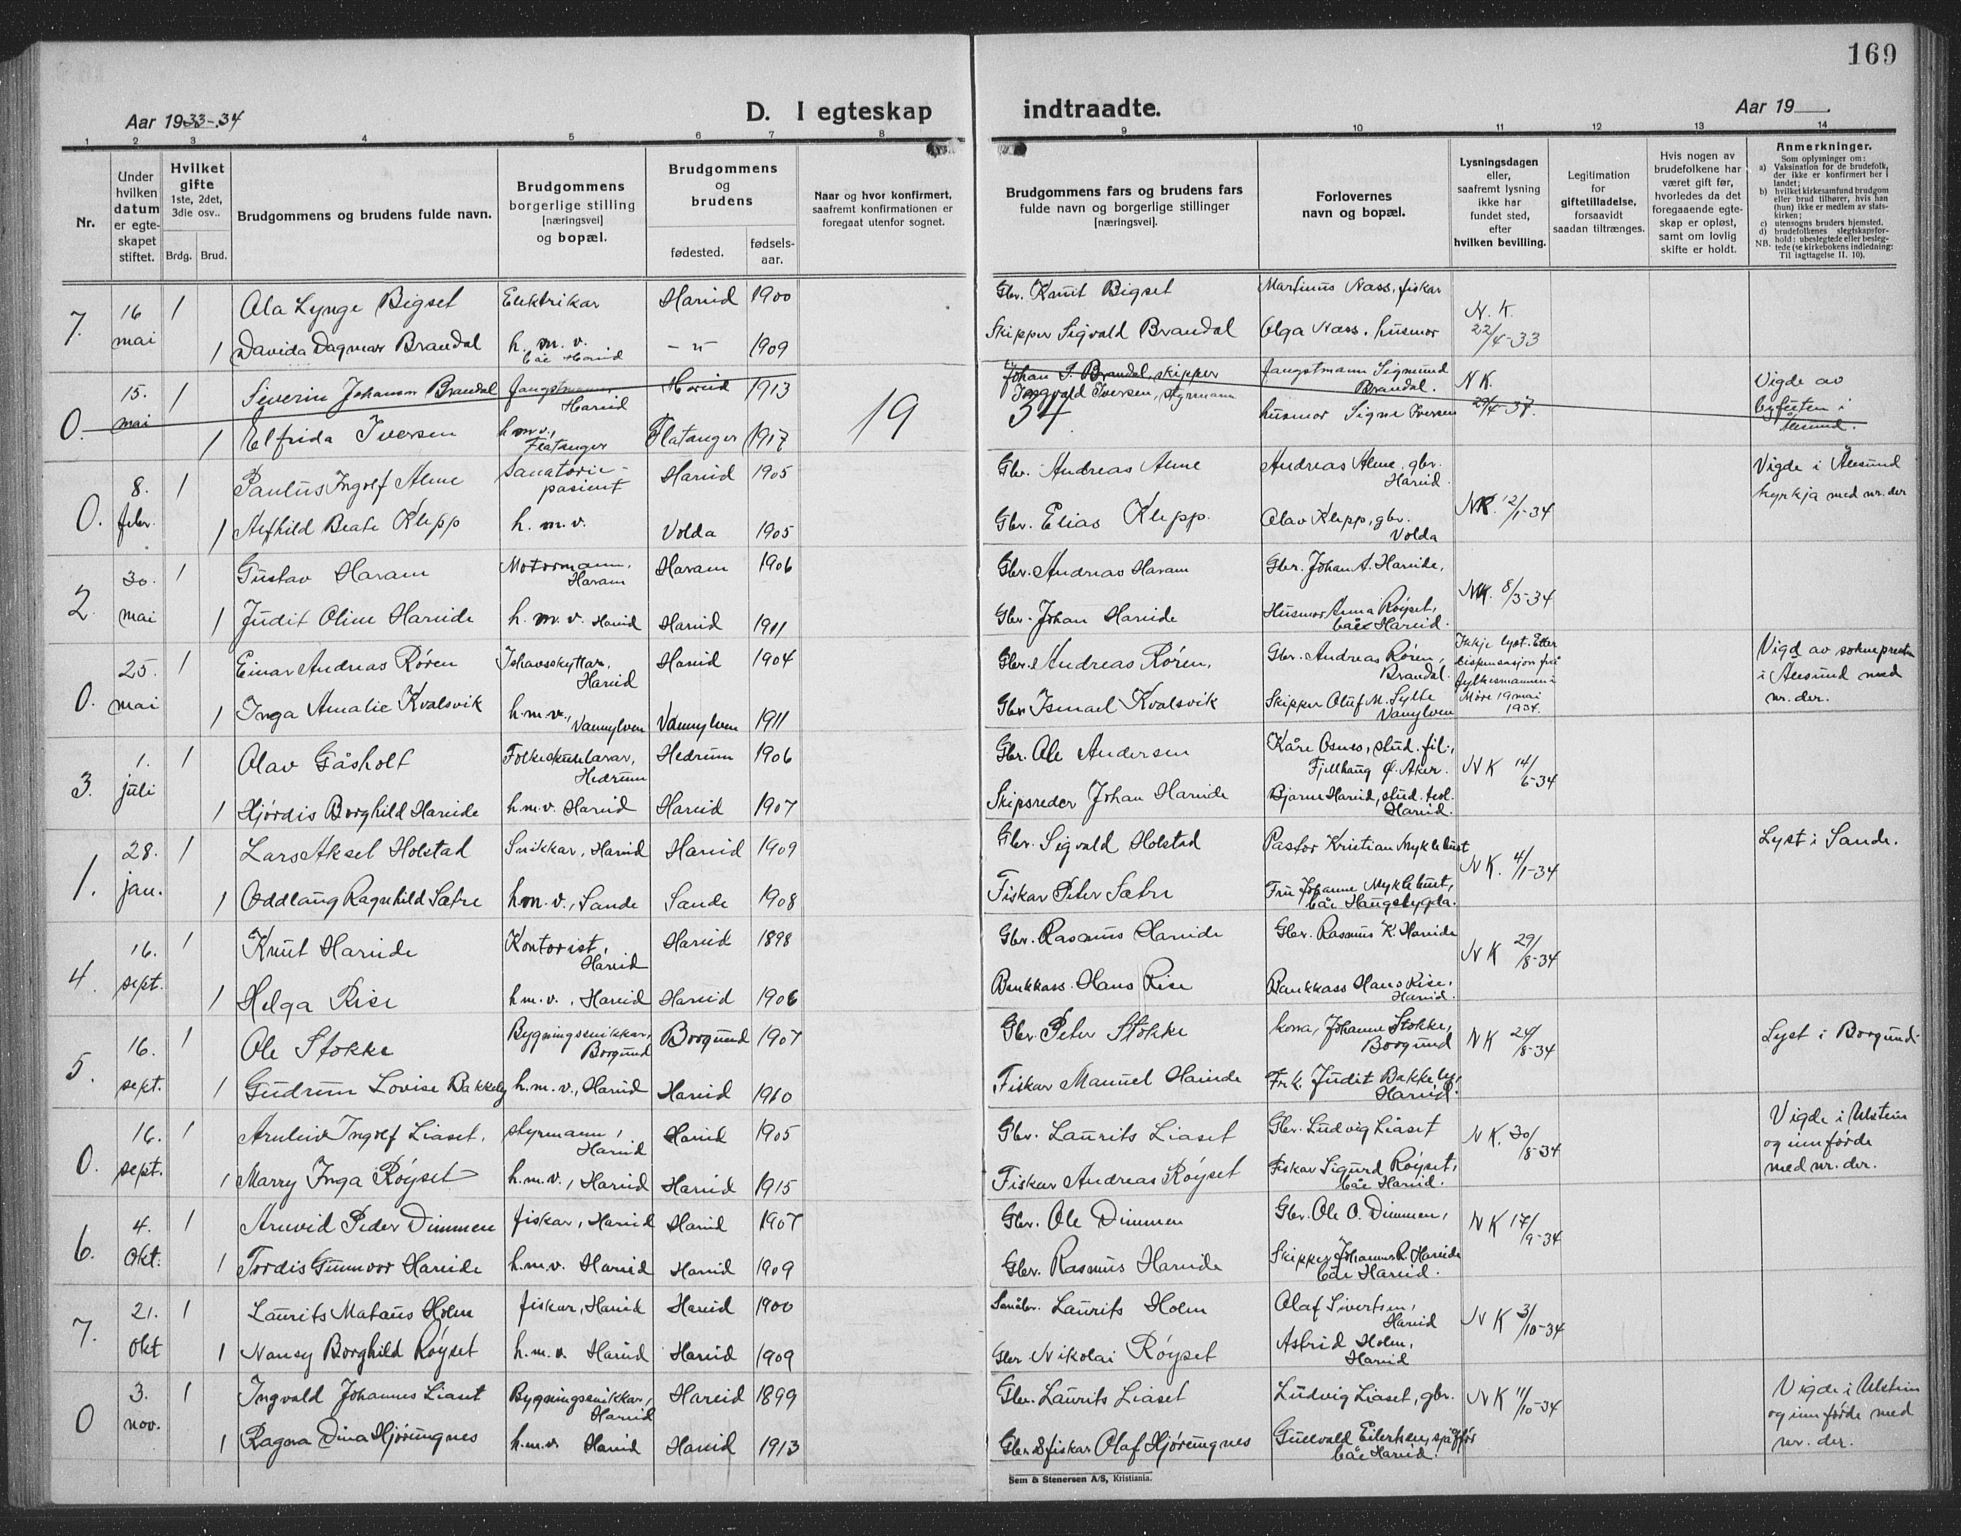 169
Aar 1933-34
D. I egteskap
indtraadte.
Aar 19
1 2 3 4 5 6 7 8 9 10 11 12 13 14
Nr.
Under hvilken datum er egteskapet stiftet.
Hvilket gifte 1ste, 2det, 3die osv..
Brdg. Brud.
Brudgommens og brudens fulde navn.
Brudgommens borgerlige stilling [næringsvei] og bopæl.
Brudgommens og brudens
fødested.
fødsels-aar.
Naar og hvor konfirmert, saafremt konfirmationen er foregaat utenfor sognet.
Brudgommens fars og brudens fars fulde navn og borgerlige stillinger [næringsvei].
Forlovernes navn og bopæl.
Lysningsdagen eller, saafremt lysning ikke har fundet sted, efter hvilken bevilling.
Legitimation for giftetilladelse, forsaavidt saadan tiltrænges.
Hvis nogen av brudefolkene har været gift før, hvorledes da det foregaaende egteskap er opløst, samt om lovlig skifte er holdt.
Anmerkninger.
Som oplysninger om:
a) Vaksination for de brudefolk, der ikke er konfirmert her i landet;
b) hvilket kirkesamfund brudgom eller brud tilhører, hvis han (hun) ikke er medlem av statskirken;
c) utensogns bruders hjemsted.
d) brudefolkenes slegtskapsforhold: ubeslegtede eller beslegtede (se kirkebokens indledning:
NB. Til iagttagelse II. 10).
7. 16 mai 1 Ola Lynge Bigset Elektrikar Hareid 1900 Gbr. Knut Bigset Martinus Nass, fiskar N.K. 22/4-33
1 Davida Dagmar Brandal h.m.v. båe Hareid -"- 1909 Skipper Sigvald Brandal Olga Nass, husmor
0. 15. mai 1 Severin Johansen Brandal fangstmann Hareid Hareid 1913 Johan S. Brandal, skipper fangstmann Sigmund Brandal. NK. 29/4-37. Vigde av byfuten i Ålesund.
1 Elfrida Iversen h.m.v., Flatanger Flatanger 1917 19 34 Ingvald Iversen, styrmann husmor Signe Iversen
0. 8. febr. 1 Paulus Ingolf Alme Sanatoriepasient Hareid 1905 Gbr. Andreas Alme Andreas Alme, gbr. Hareid. NK. 12/1-34 Vigde i Ålesund kyrkja med nr. der
1 Alfhild Beate Klepp h.m.v. Volda 1905 Gbr. Elias Klepp. Olav Klepp, gbr. Volda
2. 30. mai 1 Gustav Haram Motormann, Haram Haram 1906 Gbr. Andreas Haram Gbr. Johan A. Hareide, NK. 8/5-34
1 Judit Oline Hareide h.m.v. Hareid Hareid 1911 Gbr. Johan Hareide Husmor Anna Røyset, båe Hareid.
0. 25. mai 1 Einar Andreas Røren Ishavsskyttar, Hareid Hareid 1904 Gbr. Andreas Røren, Gbr. Andreas Røren, Brandal. Ikkje lyst. Etter dispensasjon frå fylkesmannen i Møre 19 mai 1934. Vigd av soknepresten i Ålesund med nr. der.
1 Inga Amalie Kvalsvik h.m.v., Vannylven Vannylven 1911 Gbr Ismael Kvalsvik Skipper Oluf M. Sylte Vanylven
3. 1. juli 1 Olav Gåsholt Folkeskulelærar, Hedrum Hedrum 1906 Gbr. Ole Andersen Kåre Osnes, stud. fil., Fjellhaug Ø. Aker. NK 14/6-34
1 Hjørdis Borghild Hareide h.m.v. Hareid Hareid 1907 Skipsreder Johan Hareide Bjarne Hareid, stud. teol. Hareid.
1. 28. jan. 1 Lars Aksel Holstad Snikkar, Hareid Hareid 1909 Gbr. Sigvald Holstad Pastor Kristian Myklebust NK. 4/1-34 Lyst i Sande.
1 Oddlaug Ragnhild Sætre h.m.v., Sande Sande 1908 Fiskar Peter Sætre Fru Johanne Myklebust, båe Haugsbygda.
4. 16. sept. 1 Knut Hareide Kontorist, Hareid Hareid 1898 Gbr. Rasmus Hareide Gbr. Rasmus K. Hareide NK 29/8-34
1 Helga Rise h.m.v., Hareid Hareid 1906 Bankkass. Hans Rise Bankkass Hans Rise, Hareid.
5. 16. sept. 1 Ole Stokke Bygningssnikkar, Borgund Borgund 1907 Gbr. Peter Stokke kona, Johanne Stokke, Borgund NK 24/8-34 Lyst i Borgund.
1 Gudrun Lovise Bakkeby h.m.v., Hareid Hareid 1910 Fiskar Manuel Hareide Frk. Judit Bakkeby, Hareid.
0. 16. sept. 1 Arnleiv Ingolf Liaset, styrmann, Hareid Hareid 1905 Gbr. Laurits Liaset Gbr. Ludvig Liaset NK. 30/8-34 Vigde i Ulstein og innførde med nr. der.
1 Marry Inga Røyset h.m.v., Hareid Hareid 1915 Fiskar Andreas Røyset Fiskar Sigurd Røyset, båe Hareid.
6. 4. Okt. 1 Arnvid Peder Dimmen fiskar, Hareid Hareid 1907 Gbr. Ole Dimmen Gbr. Ole O. Dimmen, NK 17/9-34
1 Tordis Gunnvor Hareide h.m.v. Hareid Hareid 1909 Gbr. Rasmus Hareide Skipper Johannes R. Hareide båe Hareid.
7. 21. Okt 1 Laurits Mataus Holm fiskar, Hareid Hareid 1900 Småbr. Laurits Holm Olaf Sivertsen, Hareid NK 3/10-34
1 Nansy Borghild Røyset h.m.v. Hareid Hareid 1909 Gbr Nikolai Røyset Astrid Holm, Hareid
0 3. nov. 1 Ingvald Johannes Liaset Bygningssnikkar, Hareid Hareid 1899 Gbr. Laurits Liaset Ludvig Liaset, gbr. NK 11/10-34 Vigde i Ulstein og innførde med nr. der.
1 Ragna Dina Hjørungnes h.m.v. Hareid Hareid 1913 Gbr & fiskar Olaf Hjørungnes Gullvald Eilertsen, sjåfør båe Hareid.
Sem & Stenersen A/S, Kristiania.